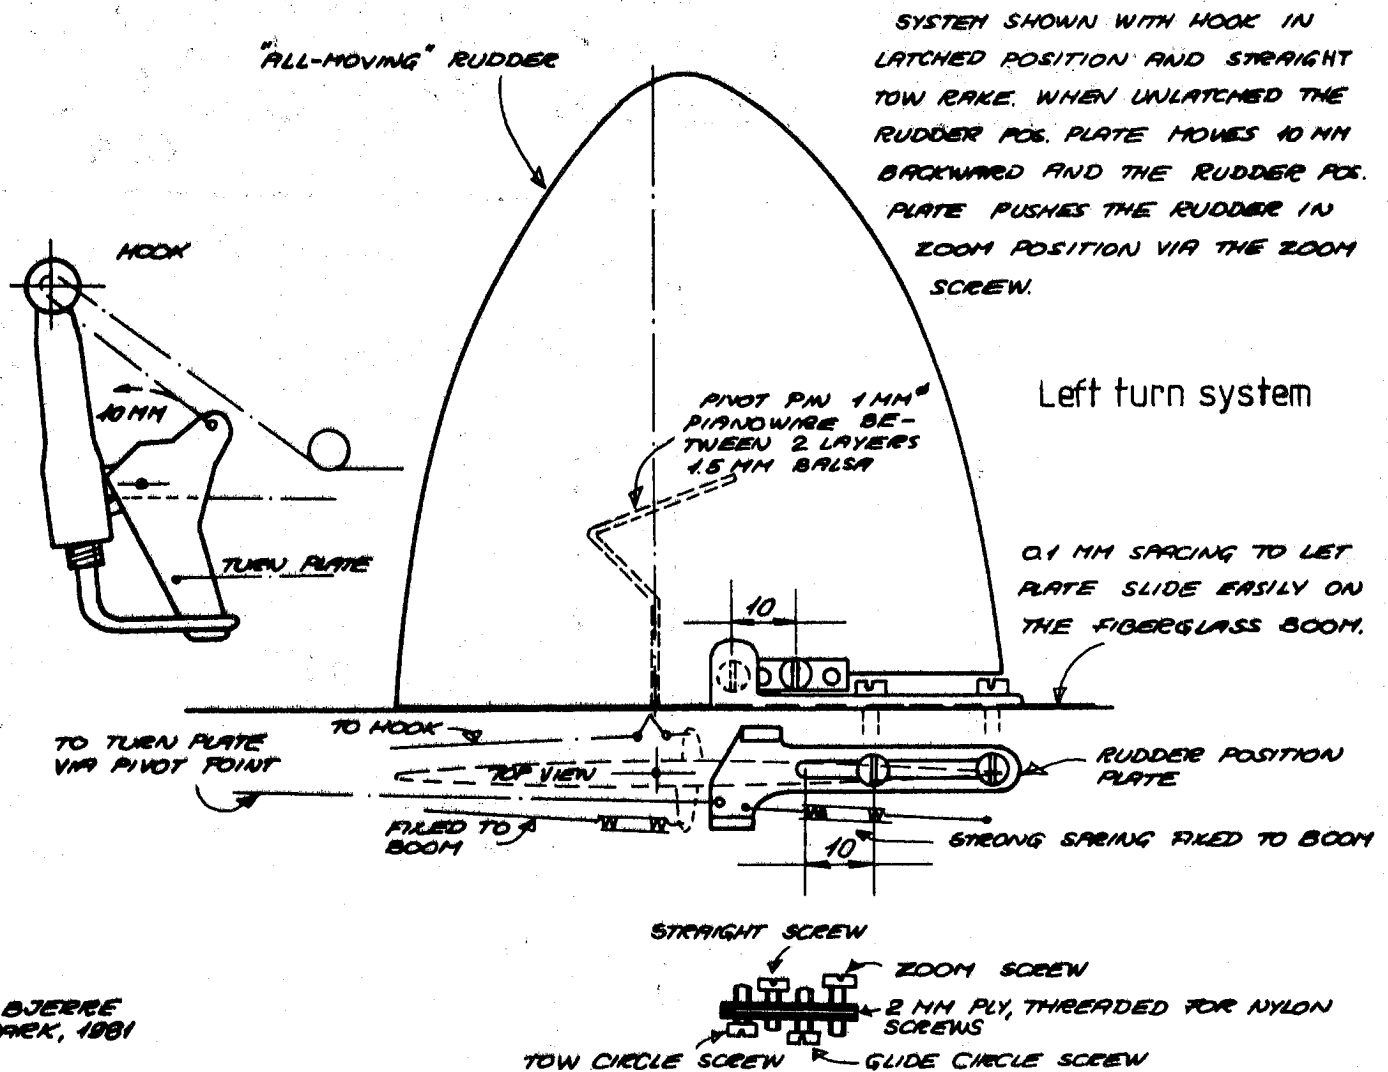 SYSTEM SHOWN WITH HOOK IN
LATCHED POSITION AND STRAIGHT
TOW RAKE. WHEN UNLATCHED THE
RUDDER POS. PLATE MOVES 10 MM
BACKWARD AND THE RUDDER POS.
PLATE PUSHES THE RUDDER IN
ZOOM POSITION VIA THE ZOOM
SCREW.
"ALL-MOVING" RUDDER
HOOK
10 MM
TURN PLATE
Left turn system
PIVOT PIN 1 MM ø
PIANOWIRE BE-
TWEEN 2 LAYERS
1.5 MM BALSA
0.1 MM SPACING TO LET
PLATE SLIDE EASILY ON
THE FIBERGLASS BOOM.
10
TO HOOK
TO TURN PLATE
VIA PIVOT POINT
TOP VIEW
RUDDER POSITION
PLATE
FIXED TO
BOOM
STRONG SPRING FIXED TO BOOM
10
STRAIGHT SCREW
ZOOM SCREW
2 MM PLY, THREADED FOR NYLON
SCREWS
TOW CIRCLE SCREW
GLIDE CIRCLE SCREW
BJERRE
ARK, 1981